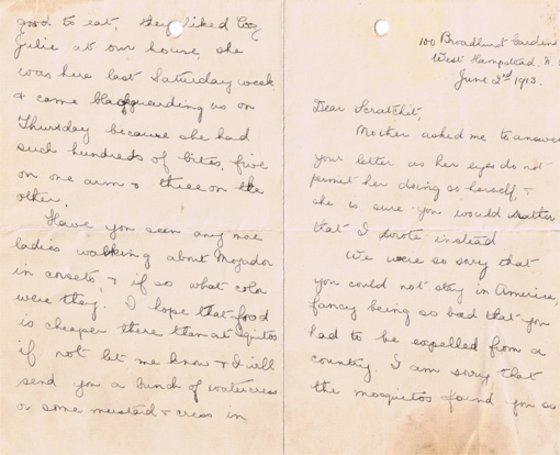 100 Broadhurst Gardens
West Hampstead N.
June 2nd 1913.
Dear Scratchit,
Mother asked me to answer
your letter as her eyes do not
permit her doing so herself, &
she is sure you would rather
that I wrote instead
We were so sorry that
you could not stay in America
fancy being so bad that you
had to be expelled from a
country. I am sorry that
the mosquitos found you so
good to eat, they liked Coz
Julie at our house, she
was here last Saturday week
& came us on
Thursday because she had
such hundreds of bites, five
on one arm & three on the
other.
Have you seen any more
ladies walking about Mogador
in corsets, & if so what color
were they. I hope that food
is cheaper there than at Iquitos
if not let me know & I will
send you a bunch of watercress
or some mustard & cress in